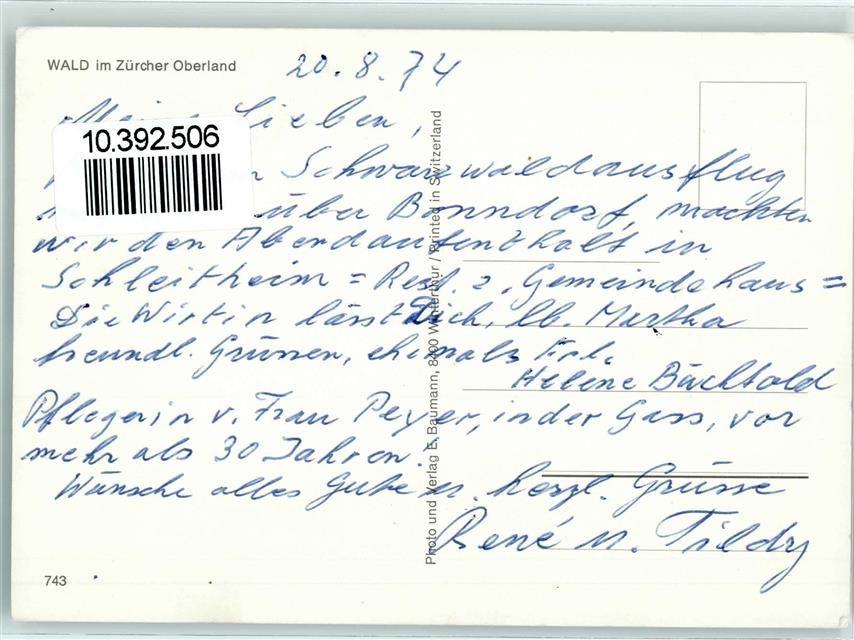 WALD im Zürcher Oberland
20.8.74
Lieben,
10.392.506
Schwarzwaldausflug
über Bonndorf, machten
wir den Abendaufenthalt in
Schleitheim = Rest. z. Gemeindehaus =
Die Wirtin lässt Dich, lb. Martha
freundl. Grüssen, ehemals Frl.
Helene Bächtold
Pflegerin v. Frau Peyer, in der Gass, vor
mehr als 30 Jahren.
Wünsche alles Gute u. herzl. Grüsse
René u. Tildy
Photo und Verlag E. Baumann, 8400 Winterthur / Printed in Switzerland
743